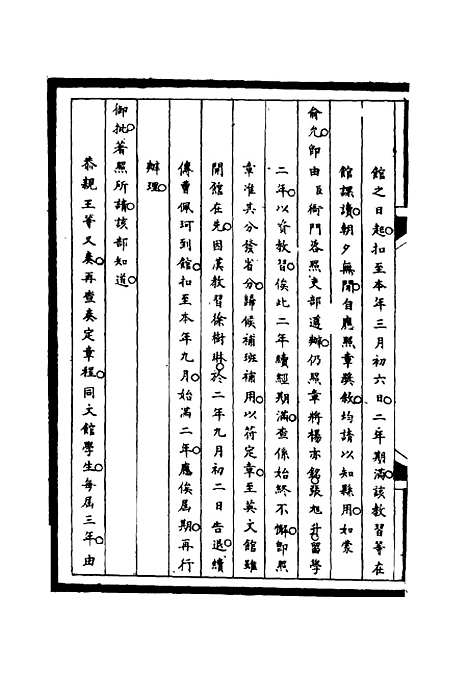 館之日起扣至本年三月初六日。二年期滿。該教習等在
館課讀。朝夕無閒。自應照章獎敘。均請以知縣用。如蒙
俞允。卽由臣衙門咨照吏部遵辦。仍照章將楊亦銘。張旭升。留學
二年。以資教習。俟此二年續經期滿。查係始終不懈。卽照
章准其分發省分。歸候補班補用。以符定章。至英文館雖
開館在先。因漢教習徐樹琳。於二年九月初二日告退。續
傳曹佩珂到館。扣至本年九月。始滿二年。應俟屆期。再行
辦理。
御批。著照所請。該部知道。
恭親王等又奏。再查奏定章程。同文館學生。每屆三年。由